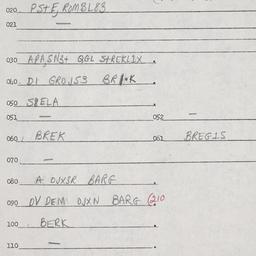 020 PSTE, ROMBL83
021 —
030 APASN3+ QGL STREKLIX.
040 DI GROJS3 BRI*K
050 SPELA
051 — 052 —
060 BREK 061 BREGIS
070 —
080 A DJXSR BARG
090 DV DEM DJXN BARG (210
100 BERK
110 —